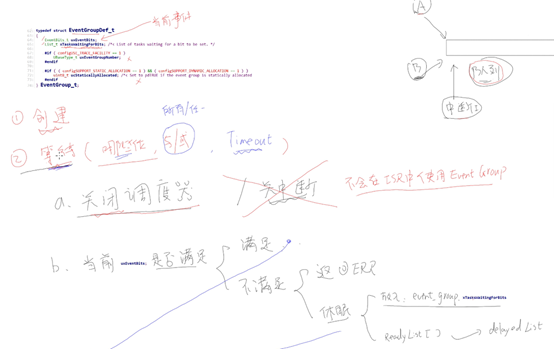 typedef struct EventGroupDef_t
{
EventBits_t uxEventBits;
List_t xTasksWaitingForBits; /*< List of tasks waiting for a bit to be set. */
#if ( configUSE_TRACE_FACILITY == 1 )
UBaseType_t uxEventGroupNumber;
#endif
#if ( ( configSUPPORT_STATIC_ALLOCATION == 1 ) && ( configSUPPORT_DYNAMIC_ALLOCATION == 1 ) )
uint8_t ucStaticallyAllocated; /*< Set to pdTRUE if the event group is statically allocated
#endif
} EventGroup_t;
当前事件
A
B
B
中断
① 创建
所有/任一
② 等待 ( 哪些位, 方式, Timeout )
a. 关闭调度器 / 关中断
不会在ISR中使用Event Group
b. 当前 uxEventBits 是否满足
满足
不满足
返回ERR
休眠
event_group. xTasksWaitingForBits
readyList[] → delayedList